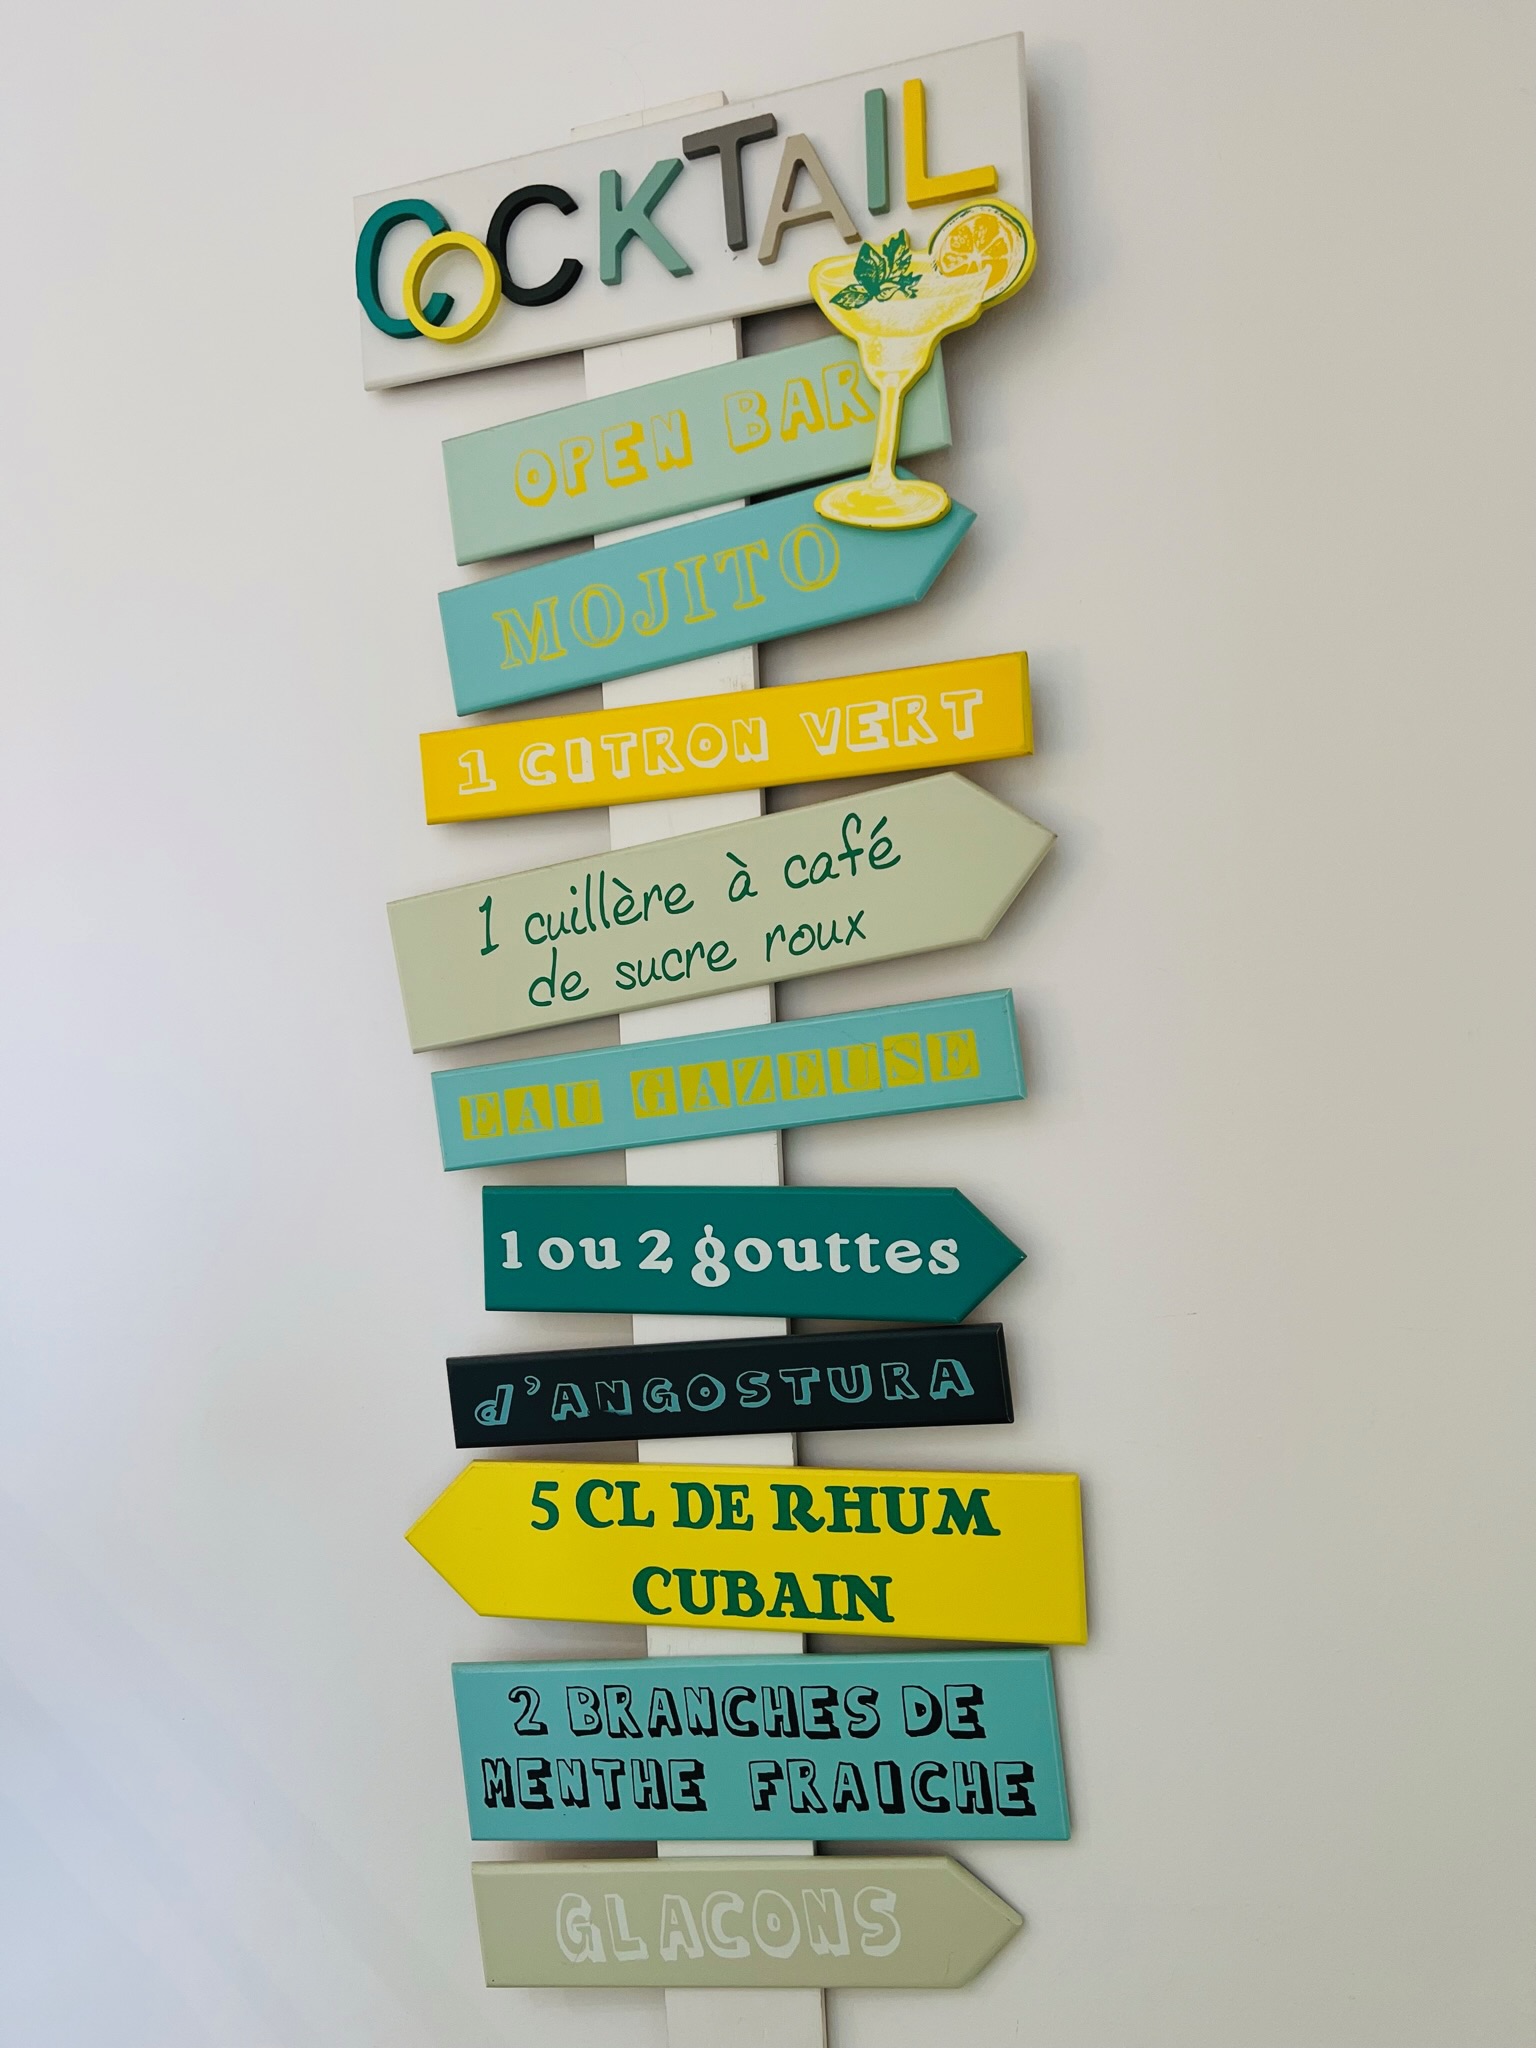 COCKTAIL
OPEN BAR
MOJITO
1 CITRON VERT
1 cuillère à café
de sucre roux
EAU GAZEUSE
1 ou 2 gouttes
d'ANGOSTURA
5 CL DE RHUM
CUBAIN
2 BRANCHES DE
MENTHE FRAICHE
GLACONS